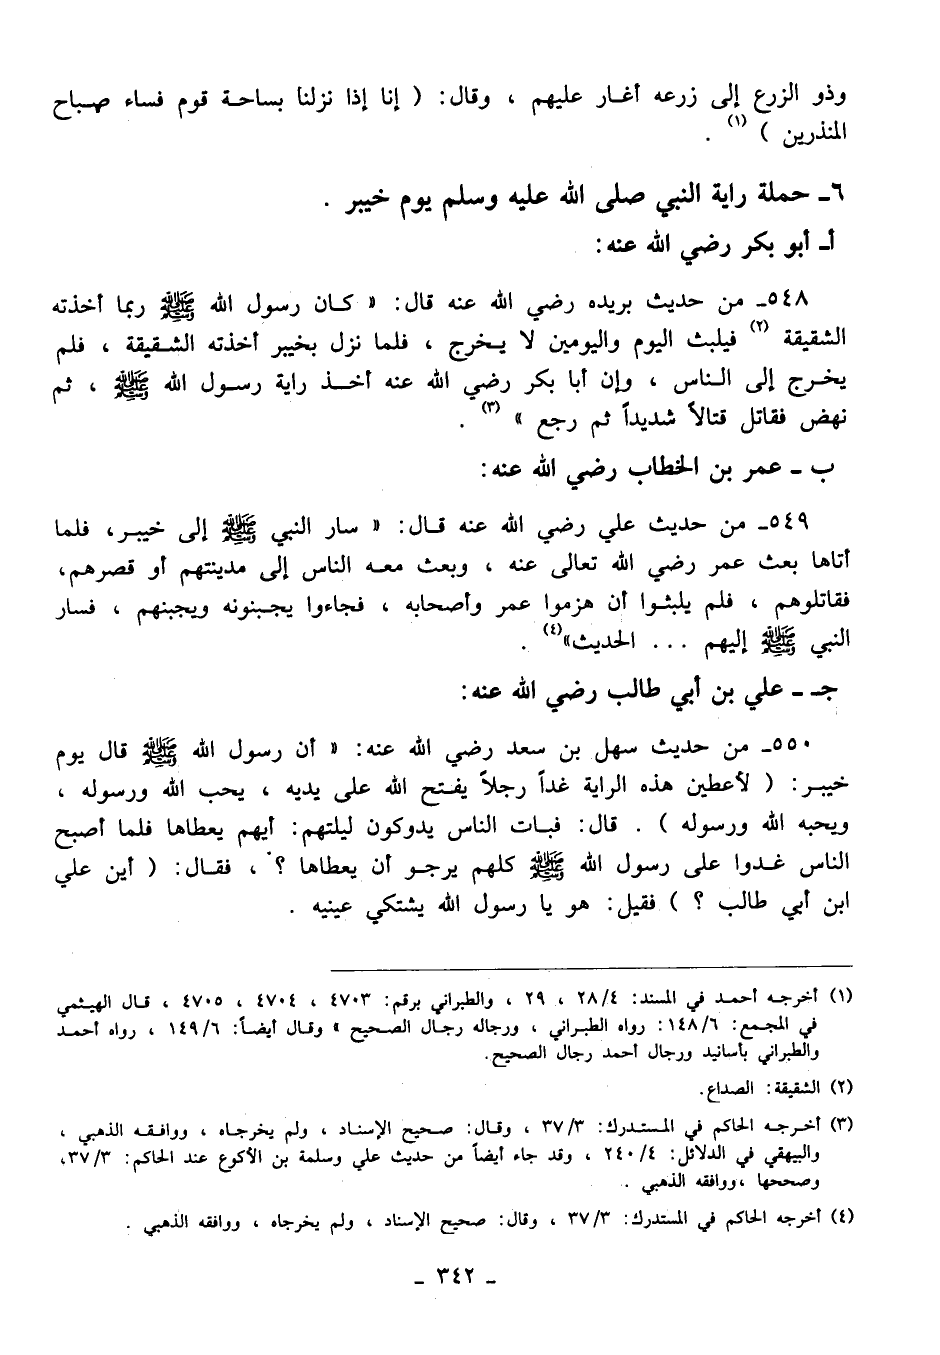 وذو الزرع إلى زرعه أغار عليهم ، وقال: ( إنا إذا نزلنا بساحة قوم فساء صباح
المنذرين ) (١) .
٦ـ حملة راية النبي صلى الله عليه وسلم يوم خيبر .
أـ أبو بكر رضي الله عنه:
٥٤٨ـ من حديث بريده رضي الله عنه قال: « كان رسول الله ﷺ ربما أخذته
الشقيقة (٢) فيلبث اليوم واليومين لا يخرج ، فلما نزل بخيبر أخذته الشقيقة ، فلم
يخرج إلى الناس ، وإن أبا بكر رضي الله عنه أخذ راية رسول الله ﷺ ، ثم
نهض فقاتل قتالاً شديداً ثم رجع » (٣) .
ب ـ عمر بن الخطاب رضي الله عنه:
٥٤٩ـ من حديث علي رضي الله عنه قال: « سار النبي ﷺ إلى خيبر، فلما
أتاها بعث عمر رضي الله تعالى عنه ، وبعث معه الناس إلى مدينتهم أو قصرهم،
فقاتلوهم ، فلم يلبثوا أن هزموا عمر وأصحابه ، فجاءوا يجبنونه ويجبنهم ، فسار
النبي ﷺ إليهم ... الحديث»(٤) .
جـ ـ علي بن أبي طالب رضي الله عنه:
٥٥٠ـ من حديث سهل بن سعد رضي الله عنه: « أن رسول الله ﷺ قال يوم
خيبر: ( لأعطين هذه الراية غداً رجلاً يفتح الله على يديه ، يحب الله ورسوله ،
ويحبه الله ورسوله ) . قال: فبات الناس يدوكون ليلتهم: أيهم يعطاها فلما أصبح
الناس غدوا على رسول الله ﷺ كلهم يرجو أن يعطاها ؟ ، فقال: ( أين علي
ابن أبي طالب ؟ ) فقيل: هو يا رسول الله يشتكي عينيه .
(١) أخرجه أحمد في المسند: ٢٨/٤ ، ٢٩ ، والطبراني برقم: ٤٧٠٣ ، ٤٧٠٤ ، ٤٧٠٥ ، قال الهيثمي
في المجمع: ١٤٨/٦: رواه الطبراني ، ورجاله رجال الصحيح » وقال أيضاً: ١٤٩/٦ ، رواه أحمد
والطبراني بأسانيد ورجال أحمد رجال الصحيح.
(٢) الشقيقة: الصداع.
(٣) أخرجه الحاكم في المستدرك: ٣٧/٣ ، وقال: صحيح الإسناد ، ولم يخرجاه ، ووافقه الذهبي ،
والبيهقي في الدلائل: ٢٤٠/٤ ، وقد جاء أيضاً من حديث علي وسلمة بن الأكوع عند الحاكم: ٣٧/٣،
وصححها ،ووافقه الذهبي .
(٤) أخرجه الحاكم في المستدرك: ٣٧/٣ ، وقال: صحيح الإسناد ، ولم يخرجاه ، ووافقه الذهبي .
ـ ٣٤٢ ـ